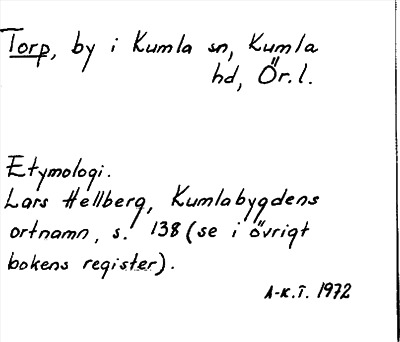 Torp, by i Kumla sn, Kumla
hd, Ör.l.
Etymologi.
Lars Hellberg, Kumlabygdens
ortnamn, s. 138 (se i övrigt
bokens register).
A-K.T. 1972